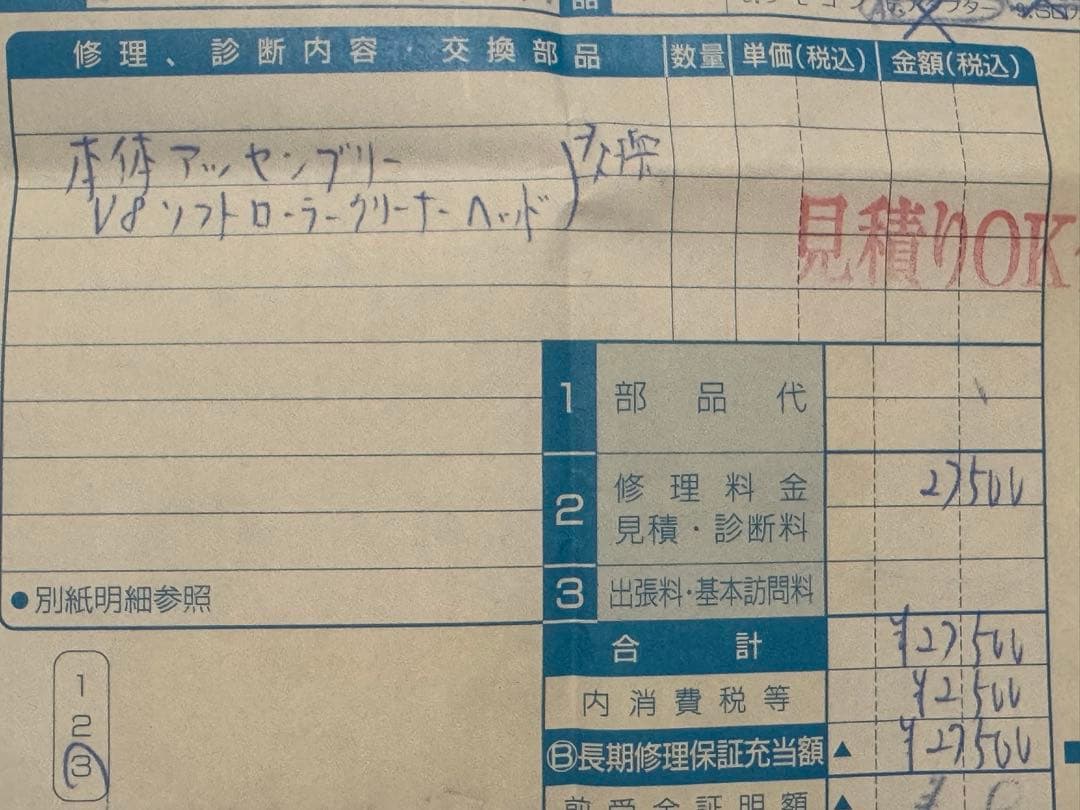 品
アダプター
修理、診断内容・交換部品 数量 単価(税込) 金額(税込)
本体アッセンブリー
V8ソフトローラークリーナーヘッド
交換
見積りOK
1 部品代
2 修理料金 27500
見積・診断料
●別紙明細参照
3 出張料・基本訪問料
合計 ¥27500
1
2
3
内消費税等 ¥2500
Ⓑ長期修理保証充当額 ▲ ¥27500
前受金証明額 ▲